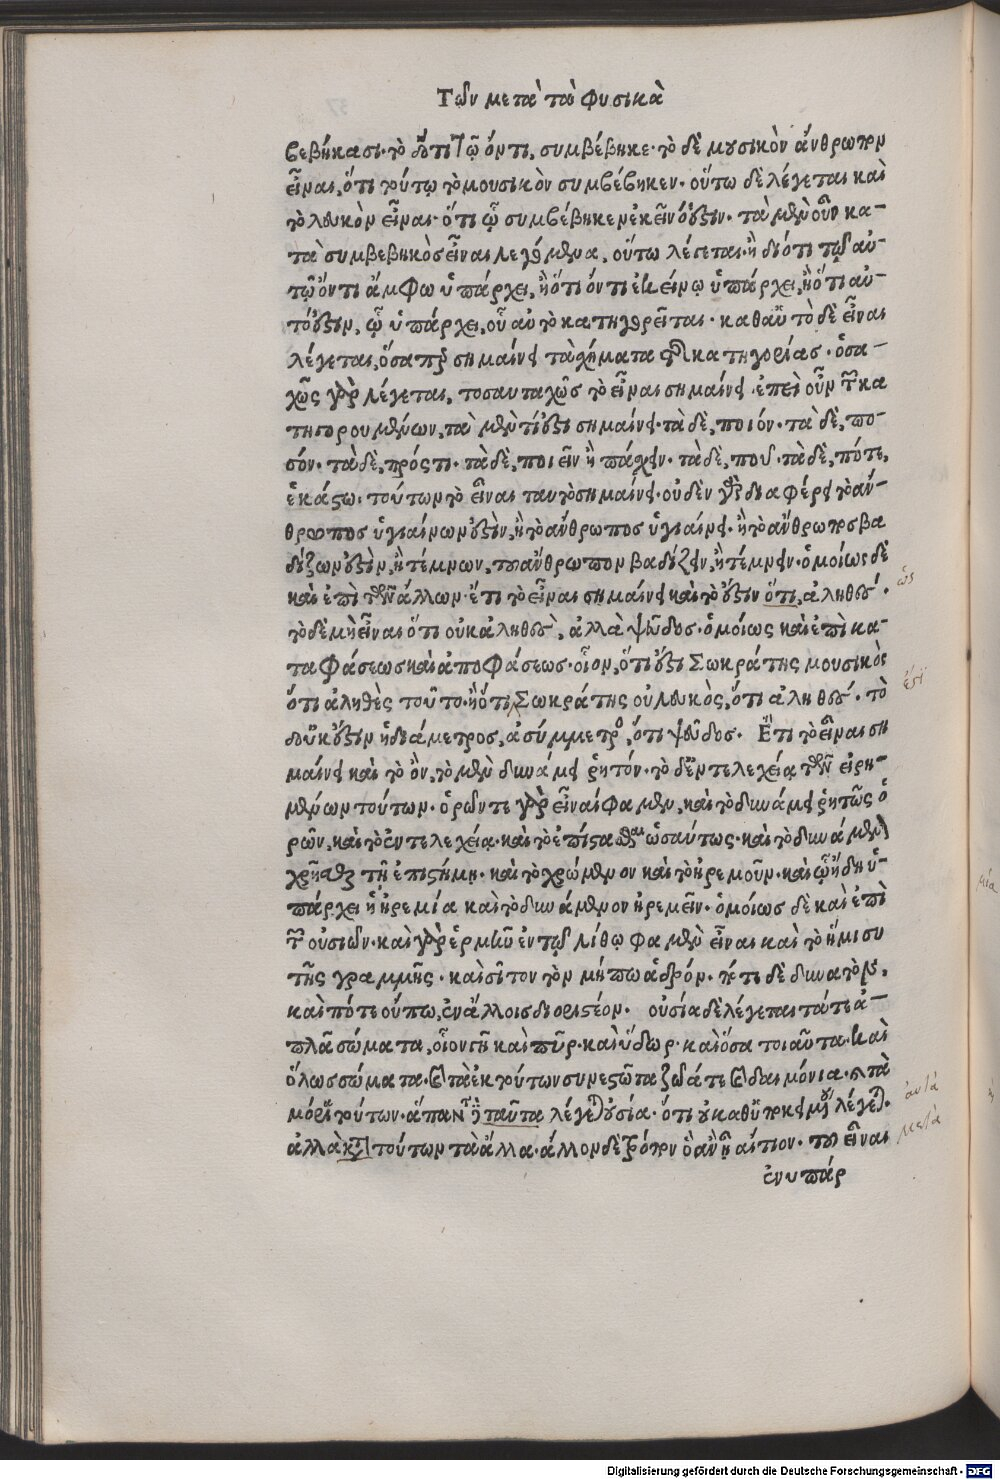 Τῶν μετὰ τὰ φυσικὰ
βεβήκασι· τὸ δ' ὅτι τῷ ὄντι, συμβέβηκε· τὸ δὲ μουσικὸν ἄνθρωπον
εἶναι, ὅτι τούτῳ τὸ μουσικὸν συμβέβηκεν· οὕτω δὲ λέγεται καὶ
τὸ λευκὸν εἶναι· ὅτι ᾧ συμβέβηκεν ἐκεῖνό ἐστιν· τὰ μὲν οὖν κα-
τὰ συμβεβηκὸς εἶναι λεγόμενα, οὕτω λέγεται· ἢ διότι τῷ αὐ-
τῷ ὄντι ἄμφω ὑπάρχει, ἢ ὅτι ὄντι ἐκείνῳ ὑπάρχει, ἢ ὅτι αὐ-
τό ἐστιν, ᾧ ὑπάρχει, οὗ αὐτὸ κατηγορεῖται· καθ' αὑτὸ δὲ εἶναι
λέγεται, ὅσαπερ σημαίνει τὰ σχήματα τῆς κατηγορίας· ὁσα-
χῶς γὰρ λέγεται, τοσαυταχῶς τὸ εἶναι σημαίνει· ἐπεὶ οὖν τῶν κα
τηγορουμένων, τὰ μὲν τί ἐστι σημαίνει· τὰ δὲ, ποιόν· τὰ δὲ, πο-
σόν· τὰ δὲ, πρός τι· τὰ δὲ, ποιεῖν ἢ πάσχειν· τὰ δὲ, ποῦ· τὰ δὲ, πότε,
ἑκάστῳ· τούτων τὸ εἶναι ταυτὸ σημαίνει· οὐδὲν γὰρ διαφέρει τὸ ἄν-
θρωπος ὑγιαίνων ἐστὶν, ἢ τὸ ἄνθρωπος ὑγιαίνει· ἢ τὸ ἄνθρωπος βα
δίζων ἐστὶν, ἢ τέμνων, τοῦ ἄνθρωπον βαδίζειν, ἢ τέμνειν· ὁμοίως δὲ
καὶ ἐπὶ τῶν ἄλλων· ἔτι τὸ εἶναι σημαίνει καὶ τὸ ἔστιν ὅτι, ἀληθές. ὡς
τὸ δὲ μὴ εἶναι ὅτι οὐκ ἀληθὲς, ἀλλὰ ψεῦδος· ὁμοίως καὶ ἐπὶ κα-
ταφάσεως καὶ ἀποφάσεως· οἷον, ὅτι ἔστι Σωκράτης μουσικὸς
ὅτι ἀληθὲς τοῦτο· ἢ ὅτι Σωκράτης οὐ λευκὸς, ὅτι ἀληθές· τὸ ἐστὶ
δ' οὐκ ἔστιν ἡ διάμετρος, ἀσύμμετρος, ὅτι ψεῦδος· Ἔτι τὸ εἶναι ση
μαίνει καὶ τὸ ὂν, τὸ μὲν δυνάμει ῥητόν· τὸ δ' ἐντελεχείᾳ τῶν εἰρη-
μένων τούτων· ὁρῶν τε γὰρ εἶναί φαμεν, καὶ τὸ δυνάμει ῥητῶς ὁ
ρῶν, καὶ τὸ ἐντελεχείᾳ· καὶ τὸ ἐπίστασθαι ὡσαύτως· καὶ τὸ δυνάμενον
χρῆσθαι τῇ ἐπιστήμῃ· καὶ τὸ χρώμενον καὶ τὸ ἠρεμοῦν· καὶ ᾧ ἤδη ὑ-
πάρχει ἡ ἠρεμία καὶ τὸ δυνάμενον ἠρεμεῖν· ὁμοίως δὲ καὶ ἐπὶ
τῶν οὐσιῶν· καὶ γὰρ ἑρμῆν ἐν τῷ λίθῳ φαμὲν εἶναι καὶ τὸ ἥμισυ
τῆς γραμμῆς· καὶ σῖτον τὸν μήπω ἁδρόν· πότε δὲ δυνατὸν,
καὶ πότε οὔπω, ἐν ἄλλοις διοριστέον. οὐσία δὲ λέγεται τά τε ἁ-
πλᾶ σώματα, οἷον γῆ καὶ πῦρ· καὶ ὕδωρ· καὶ ὅσα τοιαῦτα· καὶ
ὅλως σώματα· καὶ τὰ ἐκ τούτων συνεστῶτα ζῶά τε καὶ δαιμόνια· καὶ τὰ
μόρια τούτων· ἅπαντα δὲ ταῦτα λέγεται οὐσία· ὅτι οὐ καθ' ὑποκειμένου λέγεται. αὐτὰ
ἀλλὰ κατὰ τούτων τὰ ἄλλα· ἄλλον δὲ τρόπον ὃ ἂν ᾖ αἴτιον· τοῦ εἶναι μετὰ
ἐνυπάρ
Digitalisierung gefördert durch die Deutsche Forschungsgemeinschaft - DFG